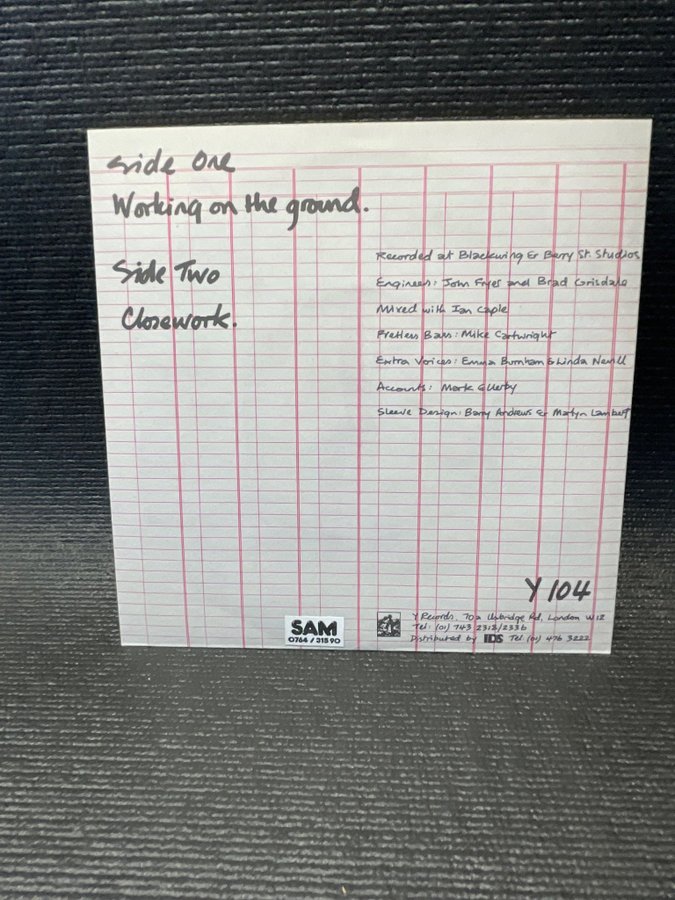 Side One
Working on the ground.
Side Two
Closework.
Recorded at Blackwing & Berry St. Studios
Engineers: John Fryer and Brad Grisdale
Mixed with Ian Caple
Fretless Bass: Mike Cartwright
Extra Voices: Emma Burnham & Linda Nevill
Accounts: Mark
Sleeve Design: Barry Andrews & Martyn Lambert
Y 104
Y Records, 70a Uxbridge Rd, London W12
Tel: (01) 743 2313/2336
Distributed by IDS Tel (01) 476 3222
SAM
0764 / 31590